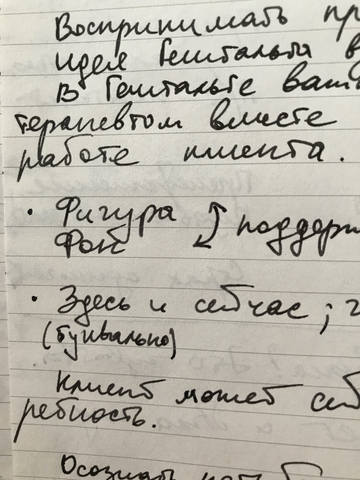 Воспринимать пр
идея Гештальта в
В Гештальте ваш
терапевтом вместе
работе клиента.
· Фигура ↕ поддер
Фон
· Здесь и сейчас;
(буквально)
Клиент может
ребность.
Осознать